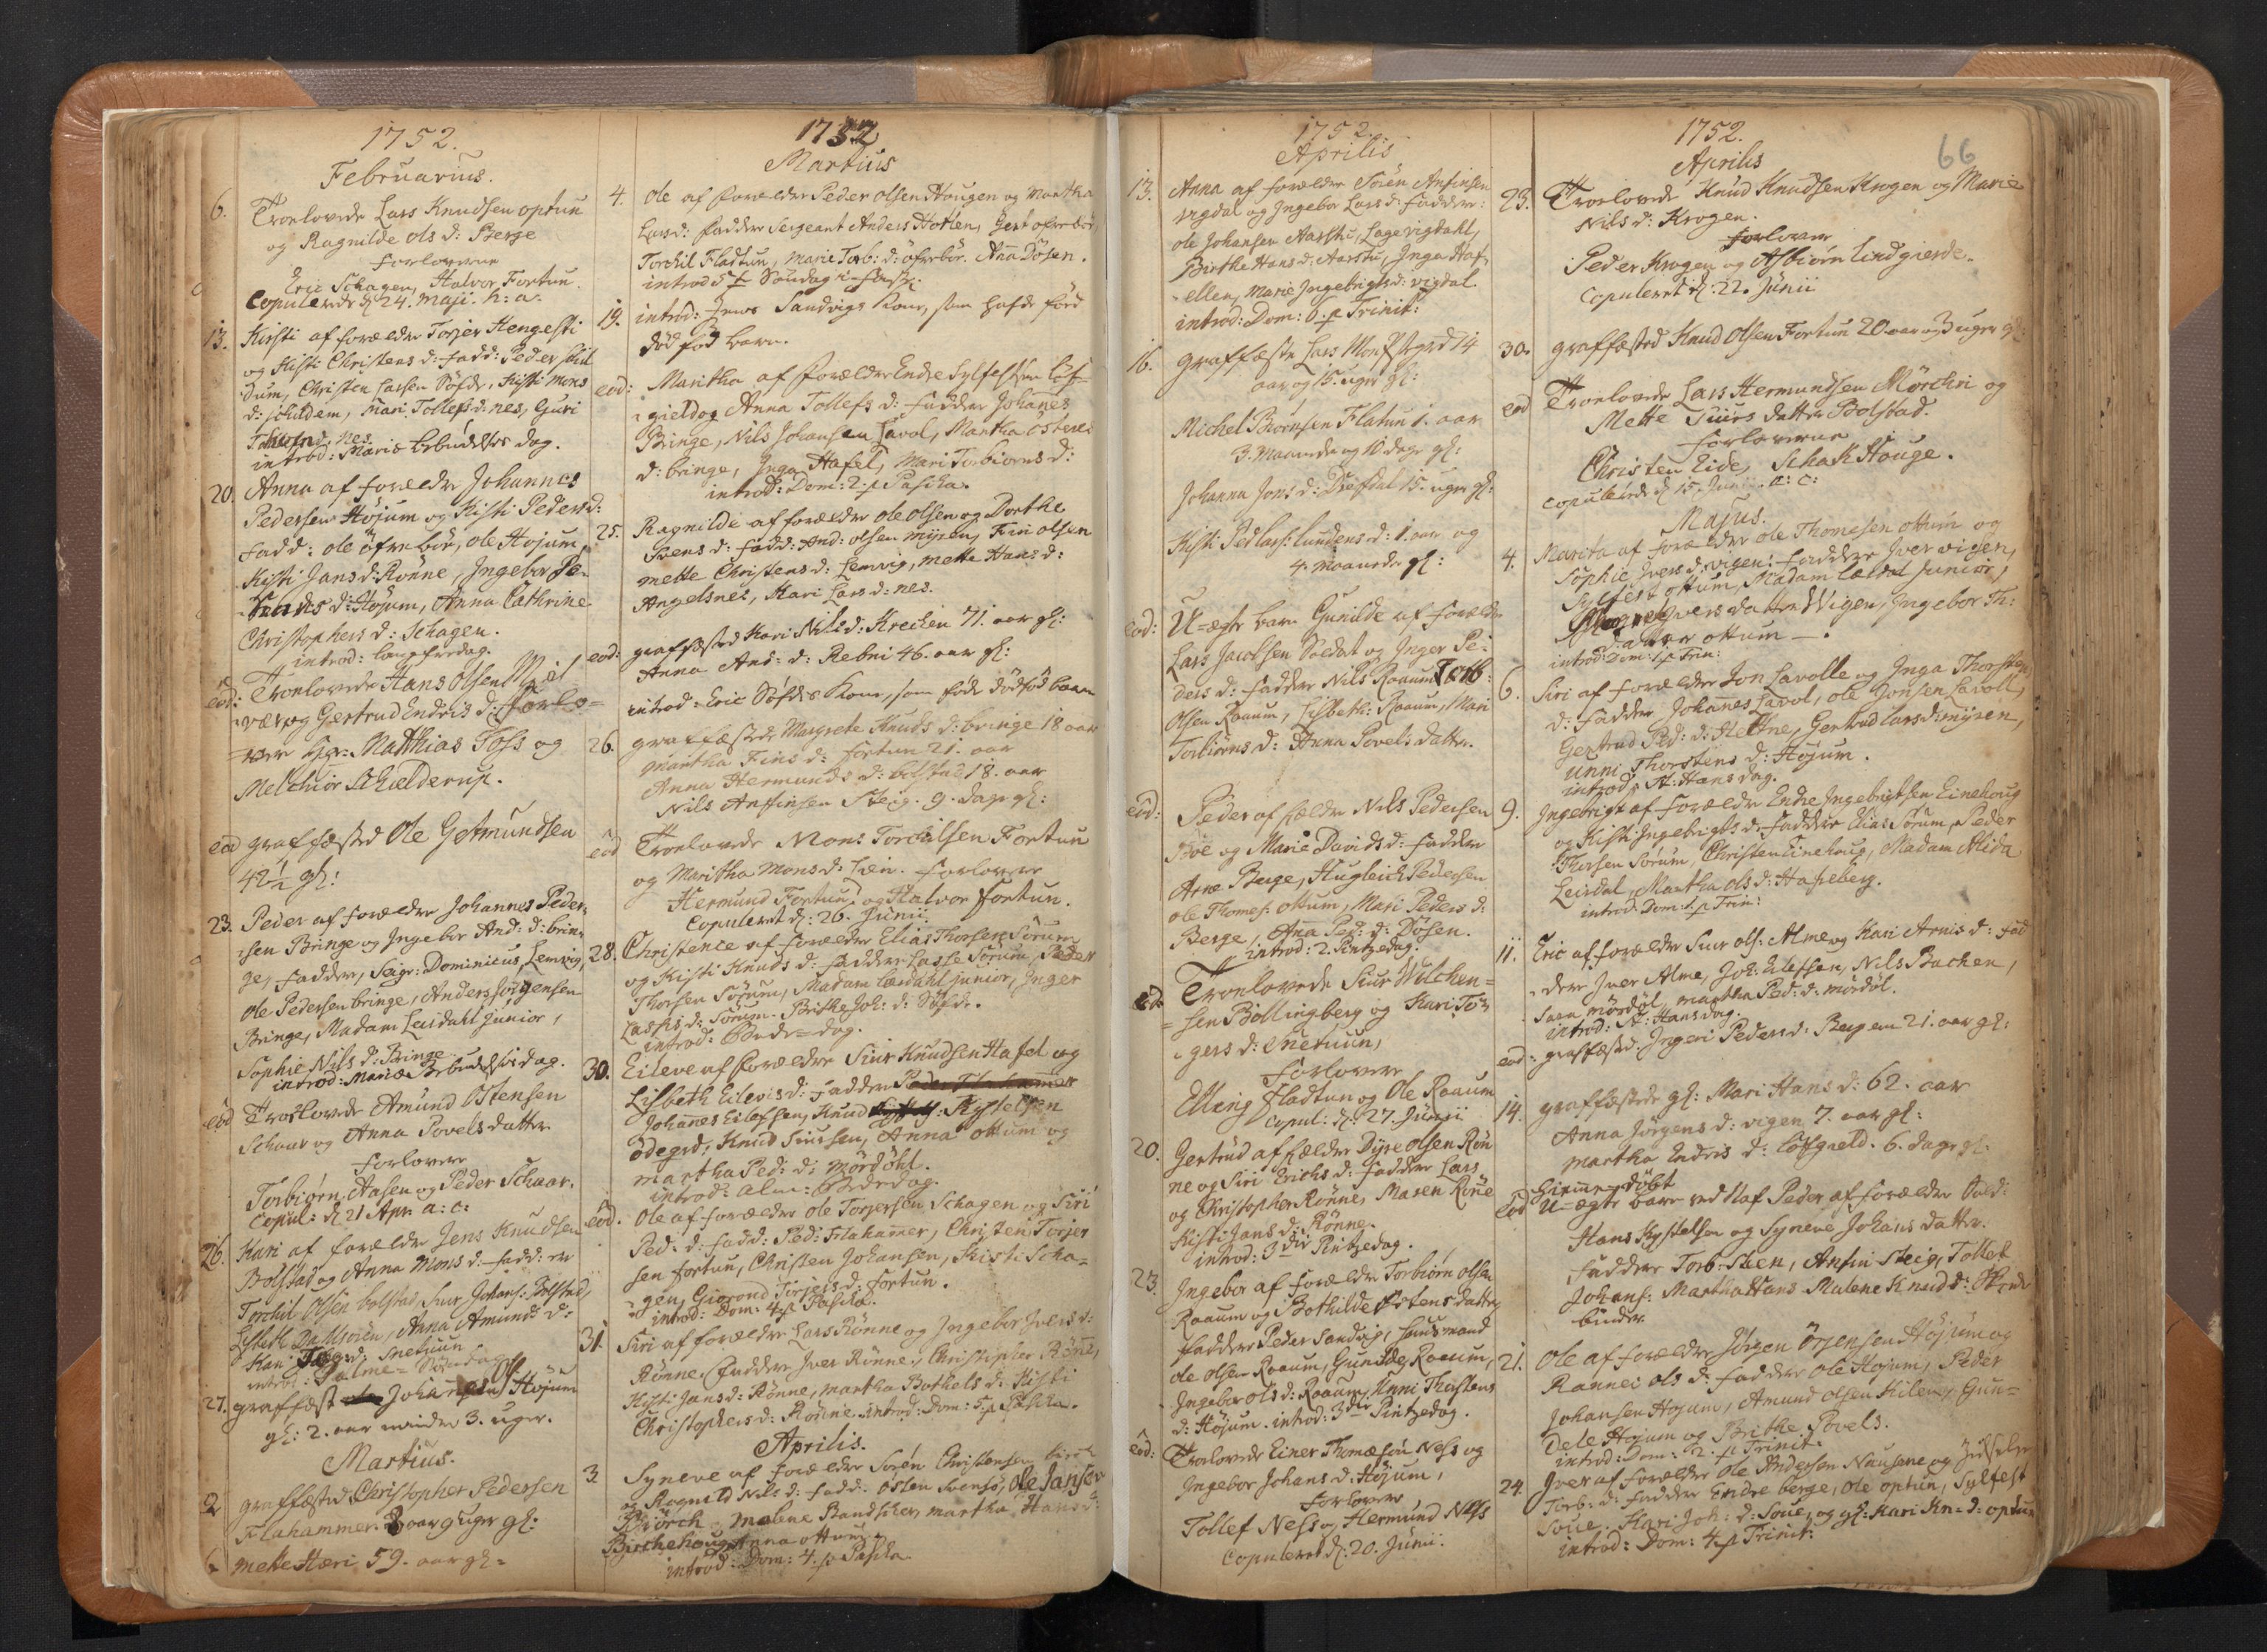 1752.
Februarius.
6. Troelovede Lars Knudsen optun
og Ragnilde Ols d: Berge
forloverne
Eric Schagen, Halvor Fortun.
Copulerede d. 24. Maji. h: a:
13. Kirsti af forældre Torjer Hengesti
og Kisti Christens d: fadd: Peder
Dum, Christen Larsen Søfde, Kisti Mons
d: Schildem, Mari Tollefs d: nes, Guri
nes
introd: Mariæ bebudelses dag.
20. Anna af forældre Johannes
Pedersen Højum og Kisti Peders d:
fadd: ole öfreböe, ole Højum,
Kisti Jans d: Rönne, Ingebor
d: Højum, Anna Cathrine
Christophers d: Schagen.
introd: langfredag.
eod: Troelovede Hans Olsen Miel
=vær og Gertrud Endris d: forlo=
=ver Hr: Matthias Foss og
Melchior Schielderup.
eod graffæsted Ole Gotmundsen
42½ gl:
23. Peder af forældre Johannes Peder=
=sen Bringe og Ingebor And: d: brin=
ge, faddere, Seigr: Dominicus Lemvig,
ole Pedersen bringe, Anders Jörgensen
Bringe, Madam Leirdahl junior,
Sophie Nils d: Bringe
introd: Mariæ Bebudelses dag.
eod Troelovede Amund Östensen
Schaar og Anna Povels datter
forlovere
Torbiörn Aasen og Peder Schaar.
Copul: d 21 Apr. a: c:
26. Kari af forældre Jens Knudsen
Bolstad og Anna Mons d: fadd: er
Torchil Olsen bolstad, Siur Johans: Bolstad,
Lisbeth, Anna Amunds d:
Kari d: Snetuun
introd: Palme= Söndag
27. graffæst Johannes Ols: Højum
gl: 2. aar minder 3. uger.
Martius.
2 graffæsted Christopher Pedersen
Flahammer. 8 aar 9 uger gl:
Mette Hæri 59. aar gl=
1752
Martius
4. Ole af forældre Peder Olsen Haugen og Martha
Lars d: faddere Sergeant Anders Hotten, Gert öfreböe,
Torchil Fladtun, Marie Torb: d: öfrebör. Anna Dösen.
introd 5te Söndag i faste.
19. introd: Jens Sandvigs Kone, som hafde föd
död föd barn.
eod: Maritha af forældre Endre Sylfestsen löf=
=gield og Anna Tollefs d: faddere Johannes
Bringe, Nils Johansen Lavol, Martha Östens
d: bringe, Inga Hafel, Mari Torbiörns d:
introd: Dom: 2. p Pascha.
25. Ragnilde af forældre ole olsen og Dorthe
Svens d: fadd: And: olsen myren, Fin olsen
Mette Christens d: Lemvig, Mette Hans d:
Angelsnes, Kari Lars d: nes.
eod: graffæsted Kari Nils d: Krechen 71. aar gl:
Anna And: d: Rebni 46. aar gl:
introd: Eric Söfdes Kone, som föde dödföd barn
26. graffæstede Margrete Knuds d: bringe 18 aar
Martha Fins d: fortun 21. aar
Anna Hermunds d: bolstad 18. aar
Nils Anfinsen Steig. 9. dage gl:
eod Troelovede Mons Torchilsen Fortun
og Maritha Mons d: Lien. forlovere
Hermund Fortun og Halvor Fortun.
Copuleret d: 26. Junii.
28. Christence af forældre Elias Thorsen Sörum
og Kisti Knuds d: faddere Lasse Sörum, Peder
Thorsen Sörum, Madam Leirdahl junior, Inger
Lasses d: Sörum. Brithe Joh: d: Söfde.
introd: Bede=dag.
30. Eileve af forældre Siur Knudsen Hafel og
Lisbeth Eilevs d: faddere
Johannes Eilefsen, Knud Kystelsen
ödegrd, Knud Siursen, Anna ottum og
martha Ped: d: Mördöhl.
introd: alm: Bededag.
eod. Ole af forældre ole Torjersen Schagen og Siri
Ped: d: fadd: Ped: Flahammer, Christen Torjer
sen fortun, Christen Johansen, Kisti Scha=
=gen, Giorond Torjers d: fortun.
introd: Dom: 4. p Pascha.
31. Siri af forældre Lars Rönne og Ingebor Ivers d:
Rönne. faddere Iver Rönne, Christopher Rönne,
Kisti Jans d: Rönne, martha Bothels d: Kisti
Christophers d: Rönne. introd: Dom: 5. p Pascha.
Aprilis.
3 Syneve af forældre Sören Christensen
og Ragnild Nils d: fadd: Östen Svensö, Ole Jansen
Biörch, Malene, martha Hans d:
Birchehoug Anna ottum
introd: Dom: 4. p Pascha
1752.
Aprilis
13. Anna af forældre Sören Anfinsen
vigdal og Ingebor Lars d: faddere:
ole Johansen Aarstu, Lage vigdahl,
Birthe Hans d: Aarstu, Inga Haf=
=ellen, Marie Ingebrigts d: vigdal.
introd: Dom: 6. p Trinit:
16. graffæste Lars 14
aar og 15. uger gl:
Michel Flatun 1. aar
3. Maaneder og 10 dage gl:
Johanna Jons d: 15. uger gl:
Kisti Ped Lars: Lundens d: 1. aar og
4. maaneder gl:
eod: U=ægte barn Gunilde af forældre
Lars Jacobsen Soldat og Inger Pe=
ders d: faddere Nils Raaum
Olsen Raaum, Lisbeth: Raaum, Mari
Torbiörns d: Anna Povels datter.
eod: Peder af fældre Nils Pedersen
Böe og Marie Davids d: faddere
Arne Berge, Hugleich Pedersen
ole Thomes: ottum, Mari Peders d:
Berge, Ana Ped: d: Dösen.
introd: 2. Pintzedag.
eod. Troelovede Siur Wilchen=
=sen Bollingberg og Kari Tör
=gers d: Snetuun,
forlovere
Elling Fladtun og Ole Raaum
Copul: d: 27. Junii
20. Gertrud af fældre Dyre olsen Rön
ne og Siri Erichs d: faddere Lars
og Christopher Rönne, Maren Röne
Kisti Jans d: Rönne.
introd: 3die Pintzedag.
23. Ingebor af forældre Torbiörn olsen
Raaum og Bothilde Östens datter
faddere Peder Sandvig, huusmand
ole olsen Raaum, Gunilde Raaum,
Ingebor Ols d: Raaum, Unni Thorstens
d: Højum. introd: 3die Pintzedag.
eod: Troelovede Einer Thomæsön Ness og
Ingebor Johans d: Højum,
forlovere
Tollef Ness og Hermund Ness
Copuleret d: 20. Junii.
1752.
Aprilis
66
23. Troelovede Knud Knudsen Krogen og Marie
Nils d: Krogen.
forlovere
Peder Krogen og Asbiörn Lindgierde.
Copuleret d: 22. Junii
30. graffæsted Knud Olsen Fortun 20 aar og 3 uger gl:
eod Troelovede Lars Hermundsen Mörchri og
Mette Siurs datter Bolstad.
forloverne
Christen Eide, Schak Houge.
Copulerede d 15. Junii. a: c:
Majus.
4. Marita af forældre ole Thomesen ottum og
Sophie Ivers d: vigen: faddere Iver vigen,
Sylfest ottum, Madam Leirdal junior,
Ivers datter Wigen, Ingebor Th:
datter ottum —.
introd: Dom: 1. p Trin:
6. Siri af forældre Jon Lavolle og Inga Thorstens
d: faddere Johannes Lavol, ole Jonsen Lavoll,
Gertrud Ped: d: Hettne, Gertrud Lars d: myren,
Unni Thorstens d: Højum.
introd: St: Hans dag.
9. Ingebrigt af forældre Endre Ingebrigtsen Einehoug
og Kisti Ingebrigts d: faddere Elias Sörum, Peder
Thorsen Sörum, Christen Einehoug, Madam Alida
Leirdal, Martha Ols d: Hafeberg.
introd: Dom: 1. p Trin:
11. Eric af forældre Siur ols: Alme og Kari Arnis d: fad
dere Iver Alme, Joh: Eilefsen, Nils Bachen,
Sara mördöl, martha Ped: d: mördöl.
introd: St: Hans dag.
eod: graffæsted. Ingeri Peders d: Bergem 21. aar gl:
14. graffæstede gl: Mari Hans d: 62. aar
Anna Jörgens d: vigen 7. aar gl:
Martha Endris d: löfgield. 6. dage gl:
Hiemmedöbt
eod U=ægte barn ved Naf Peder af forældre Sold:
Hans Kystelsen og Syneve Johans datter.
faddere Torb: Steen, Anfin Steig, Tollef
Johans: Martha Hans Malene Knud d:
binder
21. Ole af forældre Jörgen Örjensen Höjum og
Rannei Ols d: faddere Ole Højum, Peder
Johansen Højum, Amund olsen Kilen, Gun=
Dele Højum og Brithe Povels.
introd: Dom: 2. p Trinit:
24. Iver af forældre Ole Andersen Nausene og Zissele
Torb: d: faddere Endre berge, ole optun, Sylfest
Soue, Kari Joh: d: Soue, og gl: Kari Kn= d: optun
introd: Dom: 4. p Trinit: